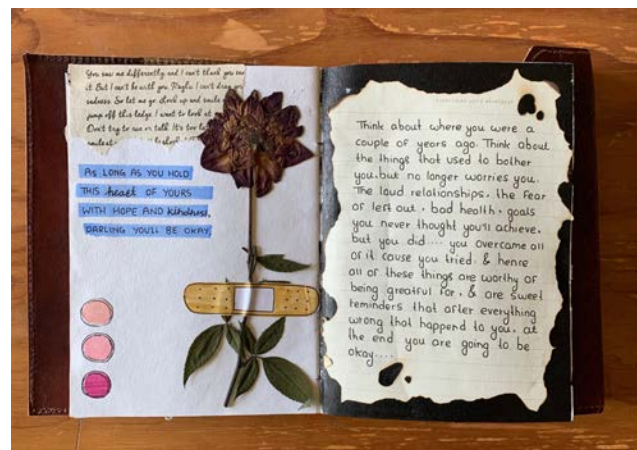 You saw me differently, and I can't thank you
it. But I can't be with you
sadness. So let me go
jump off this ledge. I want to look at
Don't try to
AS LONG AS YOU HOLD
THIS heart OF YOURS
WITH HOPE AND kindness,
DARLING YOU'LL BE OKAY.
Think about where you were a
couple of years ago. Think about
the things that used to bother
you, but no longer worries you.
The loud relationships, the fear
of left out, bad health, goals
you never thought you'll achieve,
but you did.... you overcame all
of it cause you tried. & hence
all of these things are worthy of
being greatful for, & are sweet
reminders that after everything
wrong that happend to you, at
the end you are going to be
okay....